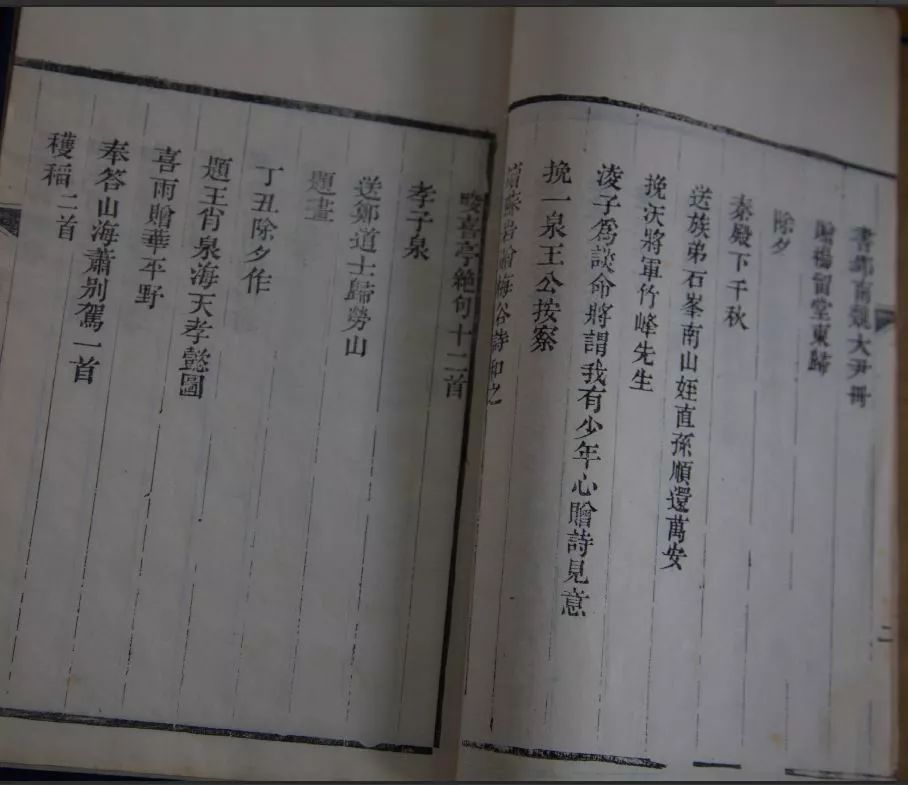 書鄒南魏大尹冊
贈楊留堂東歸
除夕
秦殿下千秋
送族弟石峯南山姪直孫順還萬安
挽沃將軍竹峰先生
凌子為談命將謂我有少年心贈詩見意
挽一泉王公按察
梅谷詩和之
喜亭絶句十二首
孝子泉
送鄭道士歸勞山
題畫
丁丑除夕作
題王肖泉海天孝懿圖
喜雨贈華平野
奉答山海蕭別駕一首
穫稲二首
二